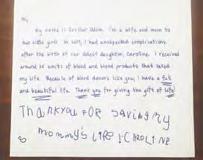 Hi,
My name is Heather Odom. I'm a wife and mom to
two little girls. In 2017, I had unexpected complications
after the birth of our oldest daughter, Caroline. I received
around 30 units of blood and blood products that saved
my life. Because of blood donors like you, I have a full
and beautiful life. Thank you for giving the gift of life!
THANKYOU FOR SAVING MY
MOMMY'S LIFE! CAROLINE